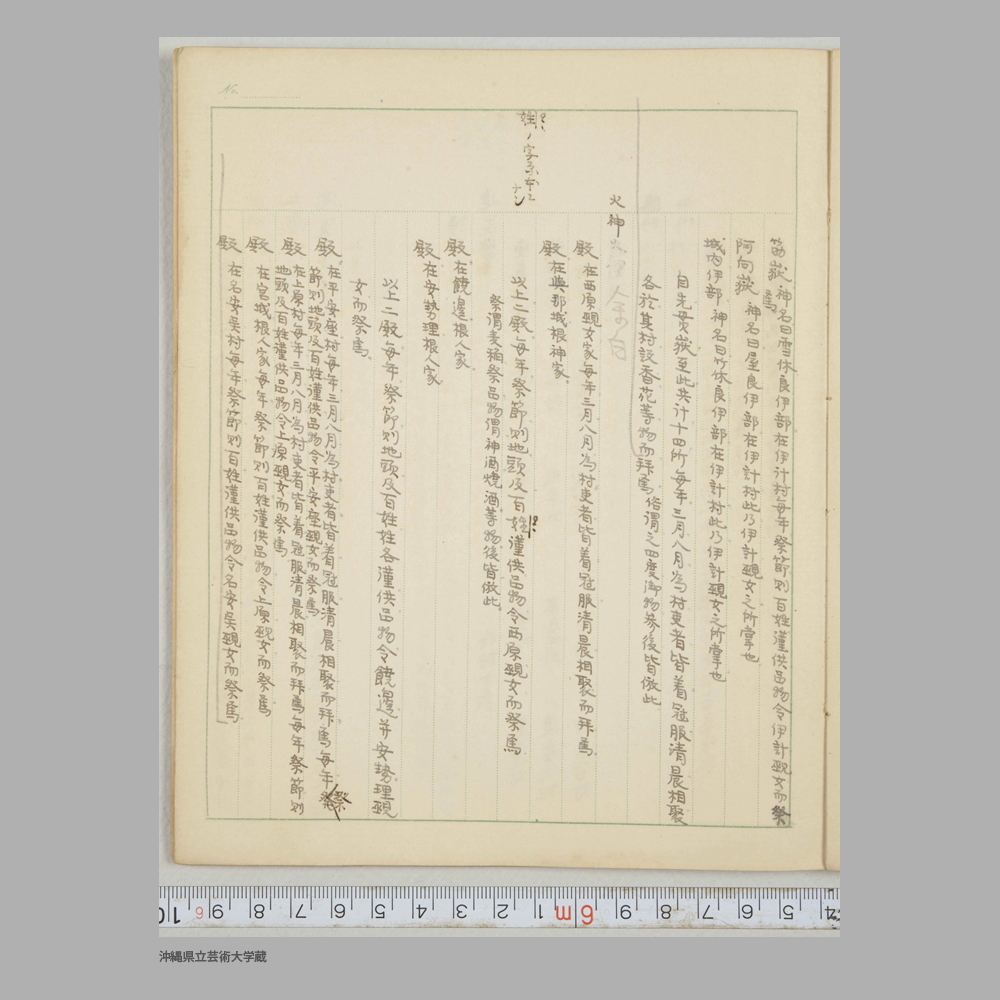 笛嶽 神名曰雪休良伊部在伊计村每年祭節則百姓謹供品物令伊計覡女而祭
焉
阿向嶽 神名曰屋良伊部在伊計村此乃伊計覡女之所掌也
城内伊部 神名曰竹休良伊部在伊計村此乃伊計覡女之所掌也
自先嶽至此共计十四所每年三月八月為村吏者皆着冠服清晨相聚
各於其村設香花等物而拜焉俗謂之四度御物參後皆倣此
火神
殿 在西原覡女家每年三月八月為村吏者皆着冠服清晨相聚而拜焉
殿 在與那城根神家
以上二殿每年祭節則地頭及百姓謹供品物令西原覡女而祭焉
祭謂麦稲祭品物謂神酒燒酒等物後皆倣此
姓ノ字原本ニ
ナシ
殿 在饒邊根人家
殿 在安勢理根人家
以上二殿每年祭節則地頭及百姓姓各謹供品物令饒邊并安勢理覡
女而祭焉
殿 在平安座村每年三月八月為村吏者皆着冠服清晨相聚而拜焉每年祭
節則地頭及百姓謹供品物令平安座覡女而祭焉
殿 在上原村每年三月八月為村吏者皆着冠服清晨相聚而拜焉每年祭節則
地頭及百姓謹供品物令上原覡女而祭焉
殿 在宮城根人家每年祭節則百姓謹供品物令上原覡女而祭焉
殿 在名安吳村每年祭節則百姓謹供品物令名安吳覡女而祭焉
10 6 9 8 7 6 5 4 3 2 1 6m 9 8 7 6 5 4
No.
沖縄県立芸術大学蔵